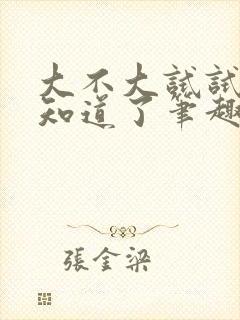 大不大試試
知道了筆趣
張金梁